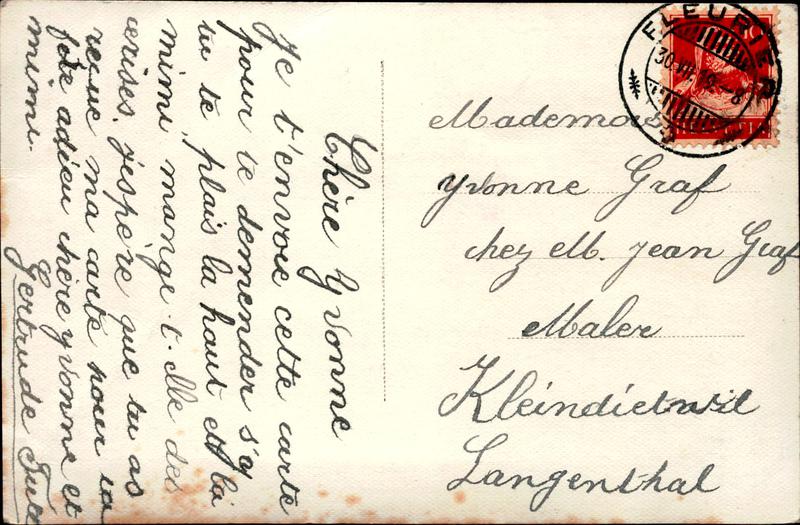 Chère Yvonne
Je t'envoie cette carte
pour te demender s'y
tu te plais la haut et la
mimi, mange t. elle des
cerises, j'espére que tu as
reçue ma carte pour ta
adieu chère yvonne et
mimi.
Gertrude
FLEURIER
30.VII.19.-8
Mademois
Yvonne Graf
chez M. Jean Graf
Maler
Kleindietwil
Langenthal